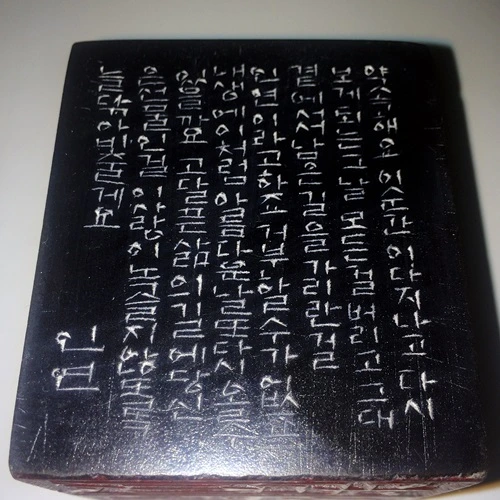 약속해요 이순간이 다 지나고 다시
보게되는 그날 모든걸 버리고 그대
곁에서서 남은길을 가리란걸
인연이라고 하죠 거부할수가 없죠
내생에 이처럼 아름다운날 또다시 올수
있을까요 고달픈 삶의길에 당신
은선물인걸 이사랑이 녹슬지않도록
늘닦아비출게요